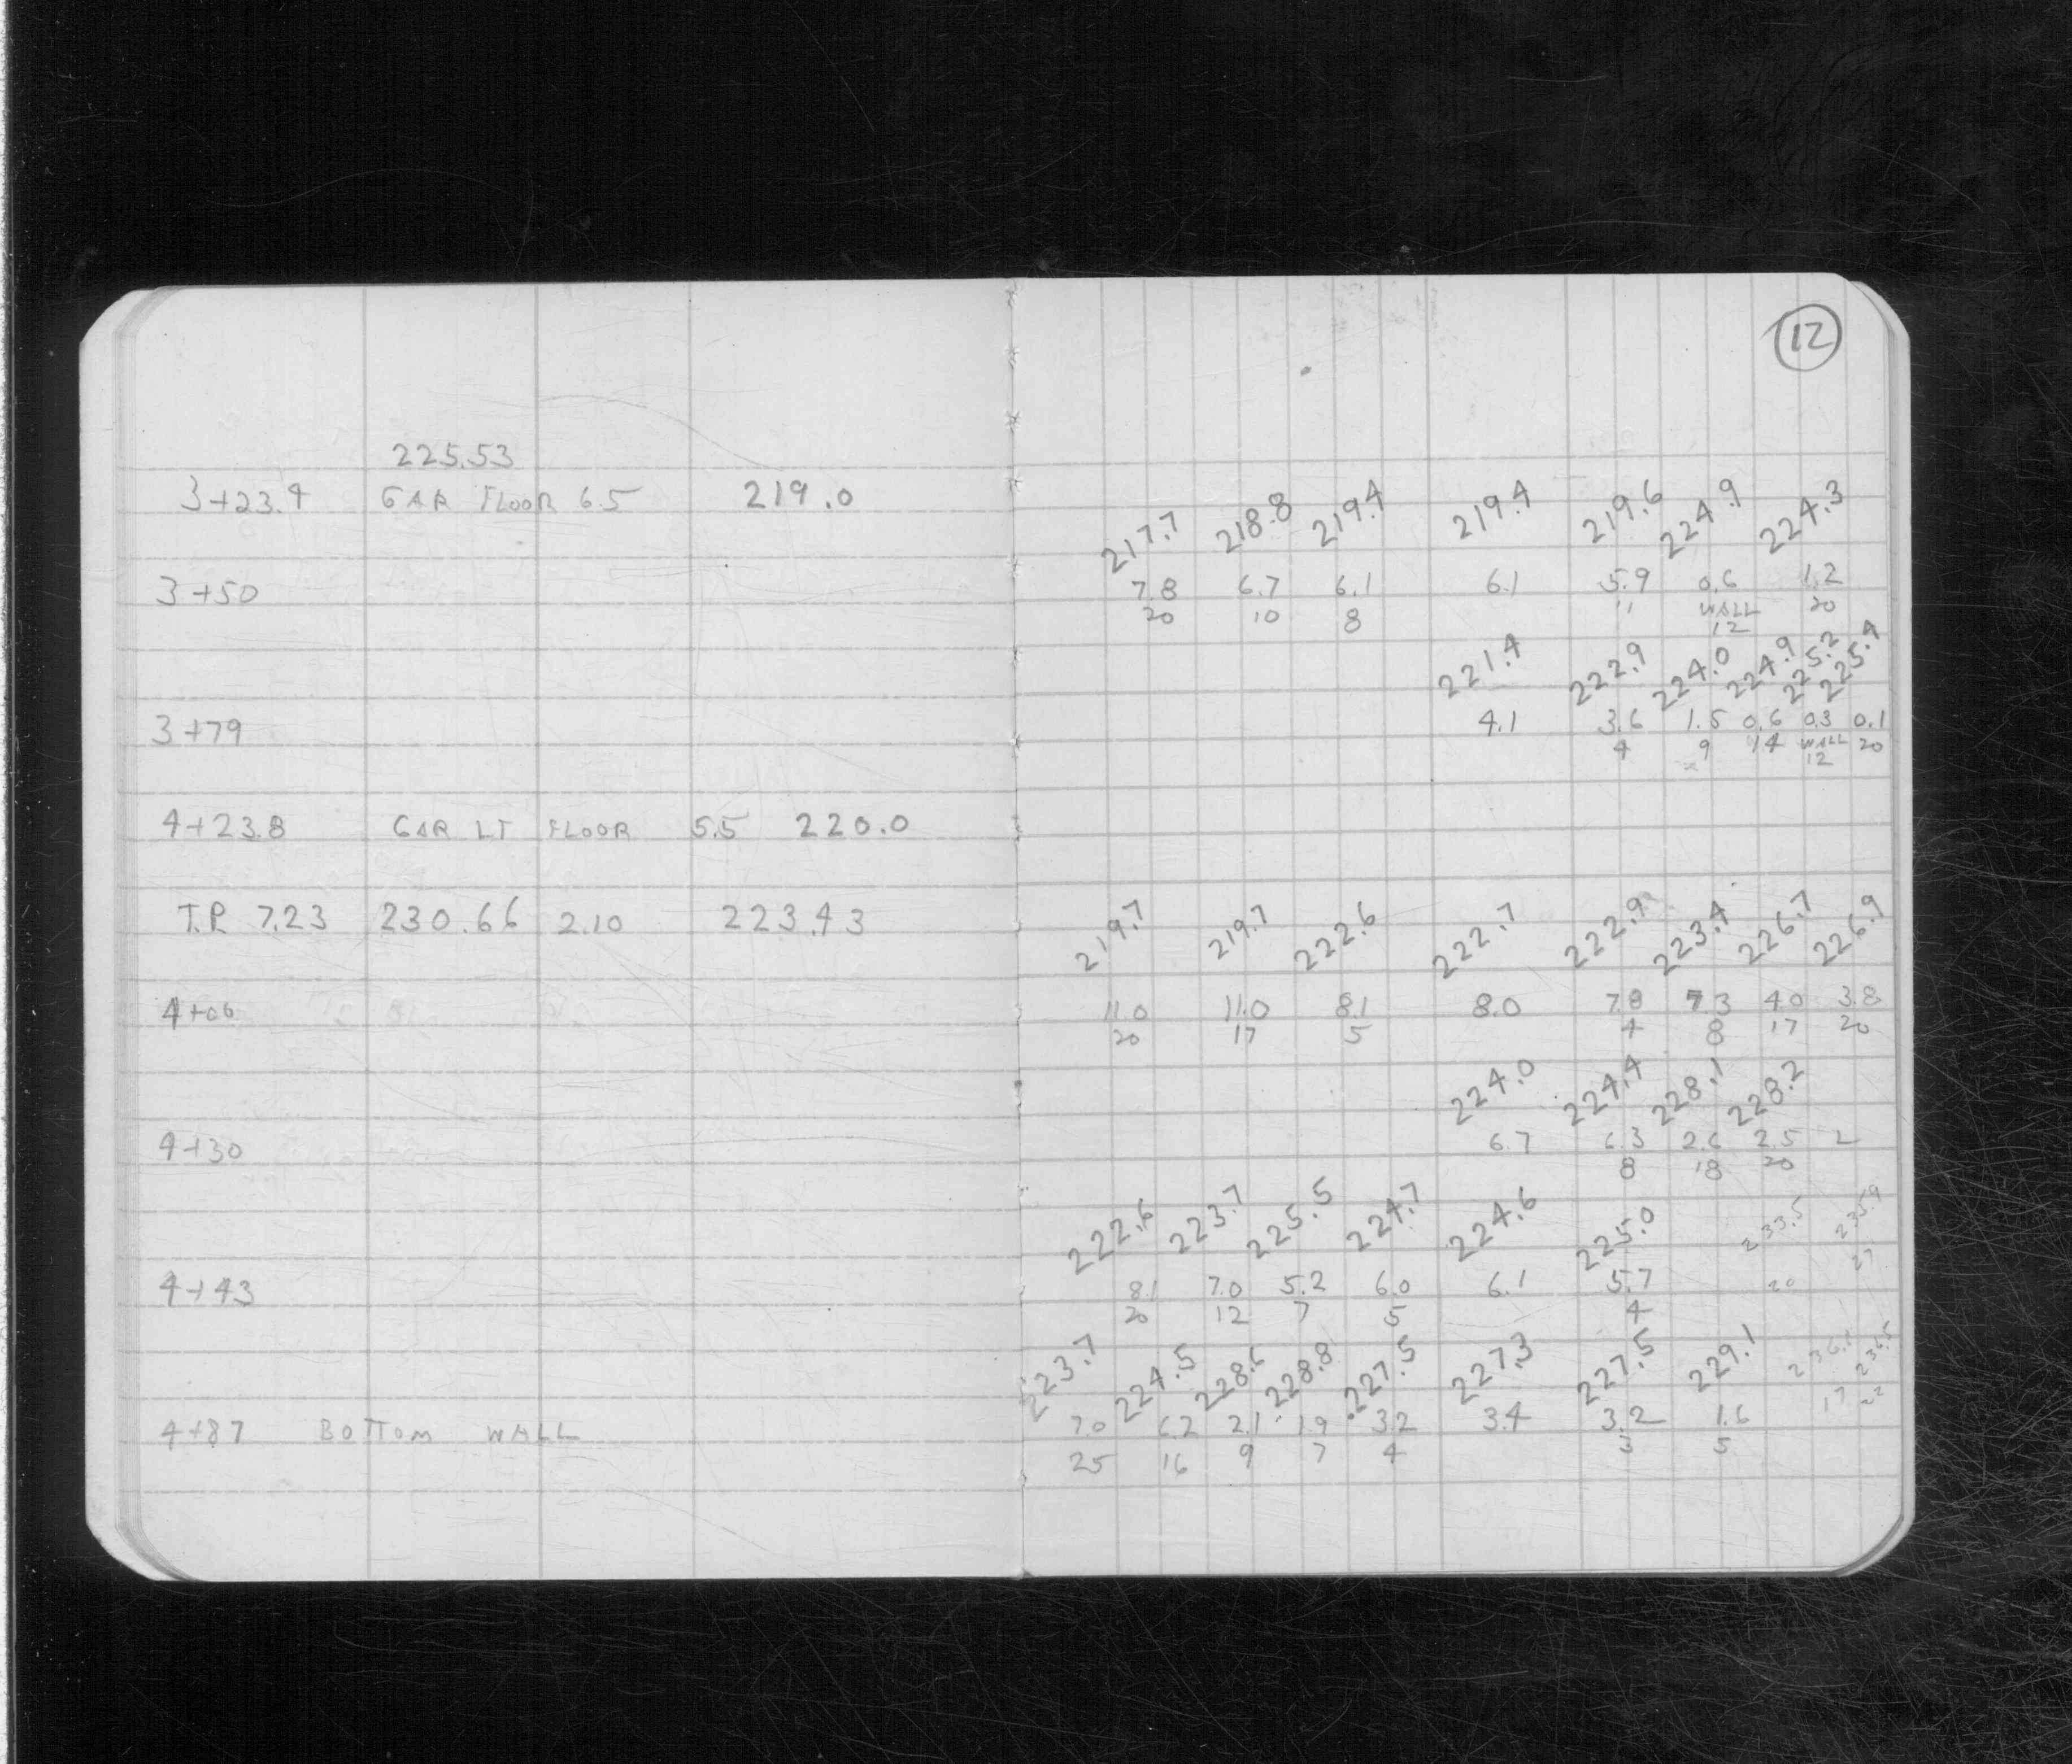 12
225.53
3+23.4 GAR FLOOR 6.5 219.0
217.7 218.8 219.4 219.4 219.6 224.9 224.3
3+50 7.8 6.7 6.1 6.1 5.9 0.6 1.2
20 10 8 11 WALL 20
12
221.4 222.9 224.0 224.9 225.2 225.4
3+79 4.1 3.6 1.5 0.6 0.3 0.1
4 9 14 WALL 20
12
4+23.8 GAR LT FLOOR 5.5 220.0
T.P. 7.23 230.66 2.10 223.43
219.7 219.7 222.6 222.7 222.9 223.4 226.7 226.9
4+06 11.0 11.0 8.1 8.0 7.8 7.3 4.0 3.8
20 17 5 4 8 17 20
224.0 224.4 228.1 228.2
4+30 6.7 6.3 2.6 2.5 2
8 18 20
222.6 223.7 225.5 224.7 224.6 225.0 233.5 235.9
27
4+43 8.1 7.0 5.2 6.0 6.1 5.7 20
20 12 7 5 4
223.7 224.5 228.6 228.8 227.5 227.3 227.5 229.1
17 22
4+87 BOTTOM WALL 7.0 6.2 2.1 1.9 3.2 3.4 3.2 1.6
25 16 9 7 4 3 5